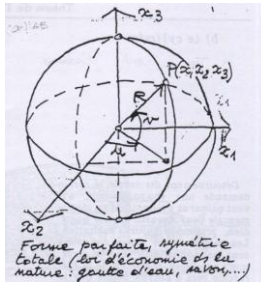 x3
P(x1 x2 x3)
R
v
u
x1
x2
Forme parfaite, symétrie
totale (loi d'économie ds la
nature : goutte d'eau, savon,...)